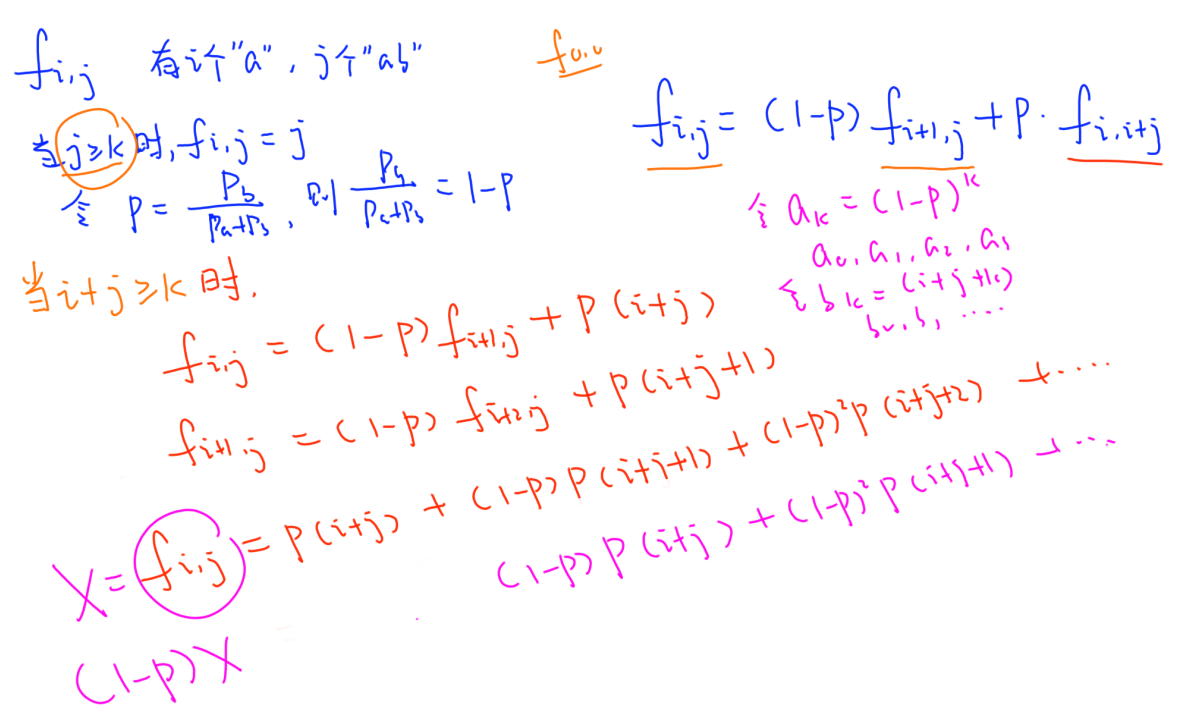 f_{i,j} 有i个"a", j个"ab"
f_{0,0}
当j≥k时, f_{i,j} = j
f_{i,j} = (1-p) f_{i+1,j} + p · f_{i,i+j}
令 p = \frac{P_b}{P_a+P_b}, 则 \frac{P_a}{P_a+P_b} = 1-p
令 a_k = (1-p)^k
a_0, a_1, a_2, a_3
令 b_k = (i+j+k)
b_0, b_1 ....
当i+j≥k时,
f_{i,j} = (1-p) f_{i+1,j} + p(i+j)
f_{i+1,j} = (1-p) f_{i+2,j} + p(i+j+1)
X = f_{i,j} = p(i+j) + (1-p)p(i+j+1) + (1-p)^2p(i+j+2) + ....
(1-p)X
(1-p)p(i+j) + (1-p)^2p(i+j+1) + ...